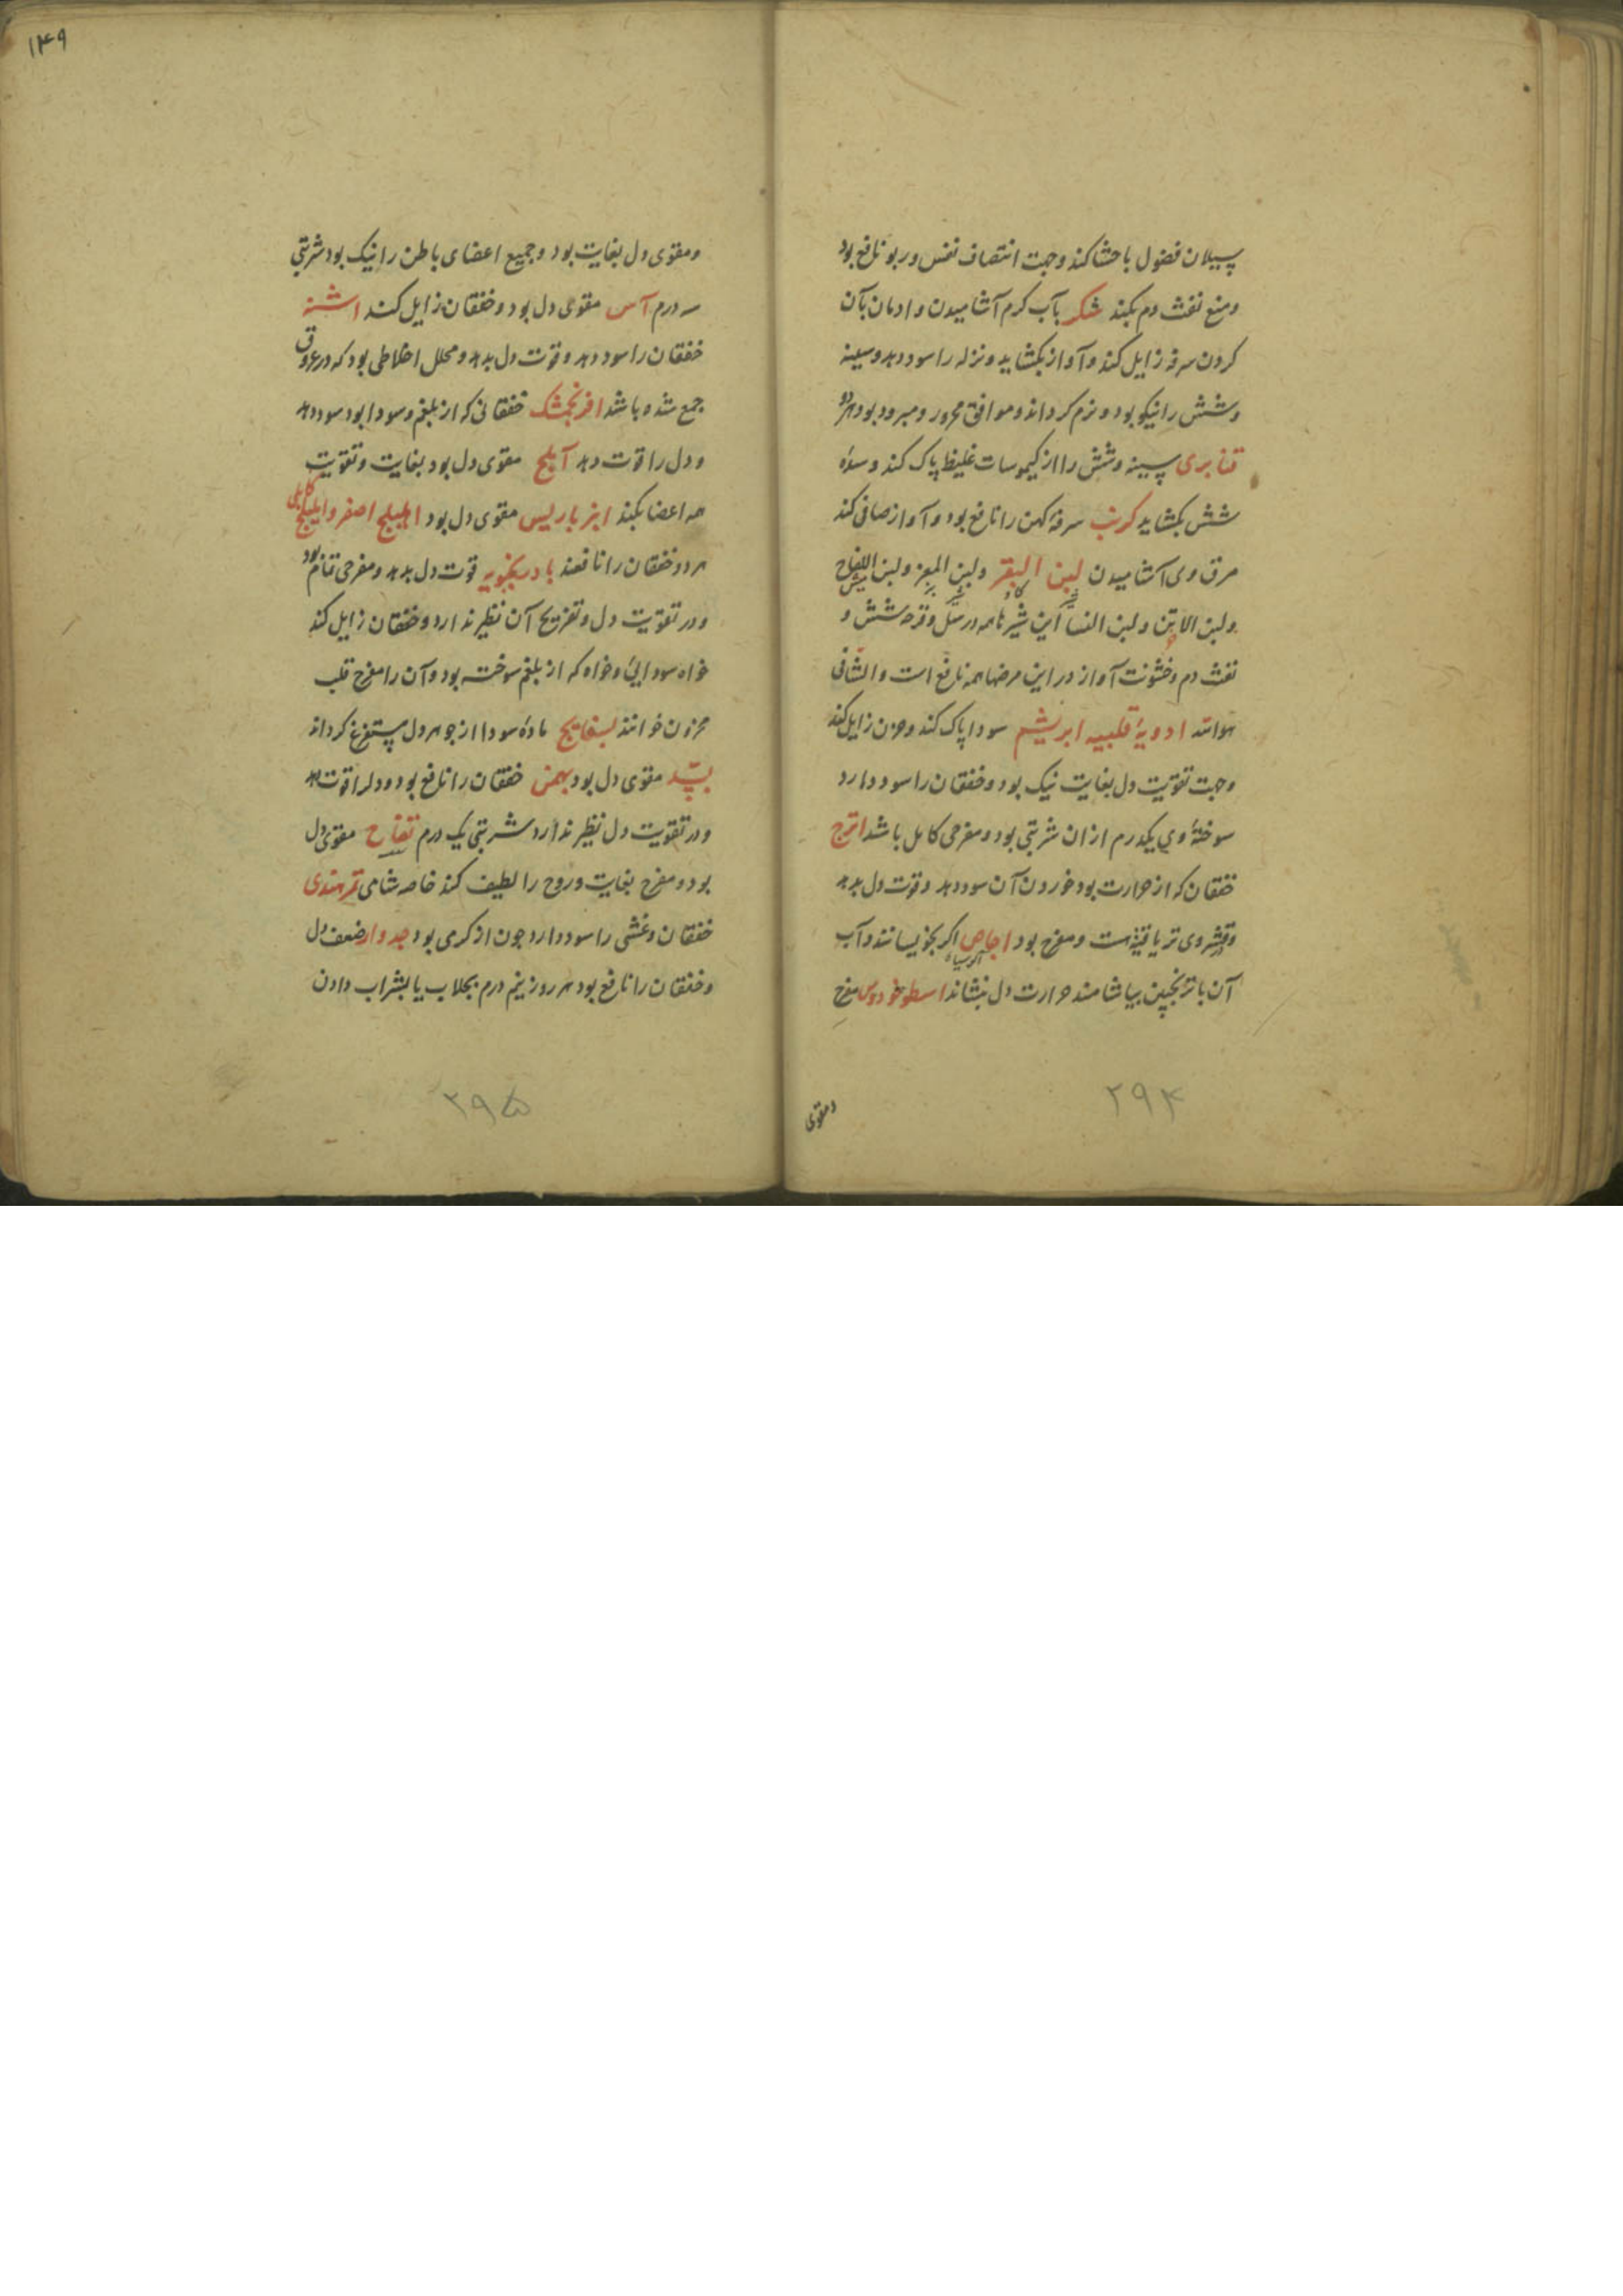 سیلان فضول باحشا کند و جهت انتصاف نفس و ربو نافع بود
و منع نفث دم بکند شکر بآب کرم آشامیدن و ادمان بآن
کردن سرفه زایل کند و آواز بکشاید و نزله را سود دهد و سینه
و شش را نیکو بود و نرم کرداند و موافق محرور و مبرود بود هر دو
قنابری سینه و شش را از کیموسات غلیظ پاک کند و سدهٔ
شش بکشاید کرنب سرفهٔ کهن را نافع بود و آواز صافی کند
مرق وی آشامیدن لبن البقر ولبن المعز ولبن اللقاح
ولبن الاتن ولبن النسا این شیرها همه در سل و قرحه شش و
نفث دم و خشونت آواز در این مرضها همه نافع است والشافی
هوالله ادویهٔ قلبیه ابریشم سودا پاک کند و حزن زایل کند
وجهت تقویت دل بغایت نیک بود و خفقان را سود دارد
سوختهٔ وی یکدرم ازان شربتی بود و مفرحی کامل باشد اترج
خفقان که از حرارت بود خوردن آن سود دهد و قوت دل بدهد
وقشر وی تریاقیتهست و مفرح بود اجاص اکر بخویسانند و آب
آلو سیاه
آن با ترنجبین بیاشامند حرارت دل بنشاند اسطوخودوس مفرح
و مقوی
۲۹۴
۱۴۹
و مقوی دل بغایت بود و جمیع اعضای باطن را نیک بود شربتی
سه درم آس مقوی دل بود و خفقان زایل کند اشنه
خفقان را سود دهد و قوت دل بدهد و محلل اخلاطی بود که در عروق
جمع شده باشد افرنجمشک خفقانی که از بلغم و سودا بود سود دهد
و دل را قوت دهد آملج مقوی دل بود بغایت و تقویت
همه اعضا بکند انبرباریس مقوی دل بود اهلیلج اصفر و اهلیلج کابلی
هر دو خفقان را نافعند بادرنجبویه قوت دل بدهد و مفرحی تمام بود
و در تقویت دل و تفریح آن نظیر ندارد و خفقان زایل کند
خواه سودایی و خواه که از بلغم سوخته بود و آن را مفرح قلب
محزون خوانند بسفایج مادهٔ سودا از جوهر دل مستفرغ کرداند
بسد مقوی دل بود بهمن خفقان را نافع بود و دلرا قوت دهد
و در تقویت دل نظیر ندارد شربتی یک درم تفاح مقوی دل
بود و مفرح بغایت و روح را لطیف کند خاصه شامی تمر هندی
خفقان و غشی را سود دارد جون از کرمی بود جدوار ضعف دل
و خفقان را نافع بود هر روز نیم درم بجلاب یا بشراب دادن
۲۹۵